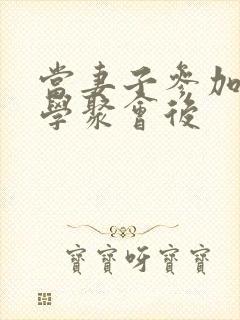 當妻子參加
學聚會後
寶寶呀寶寶